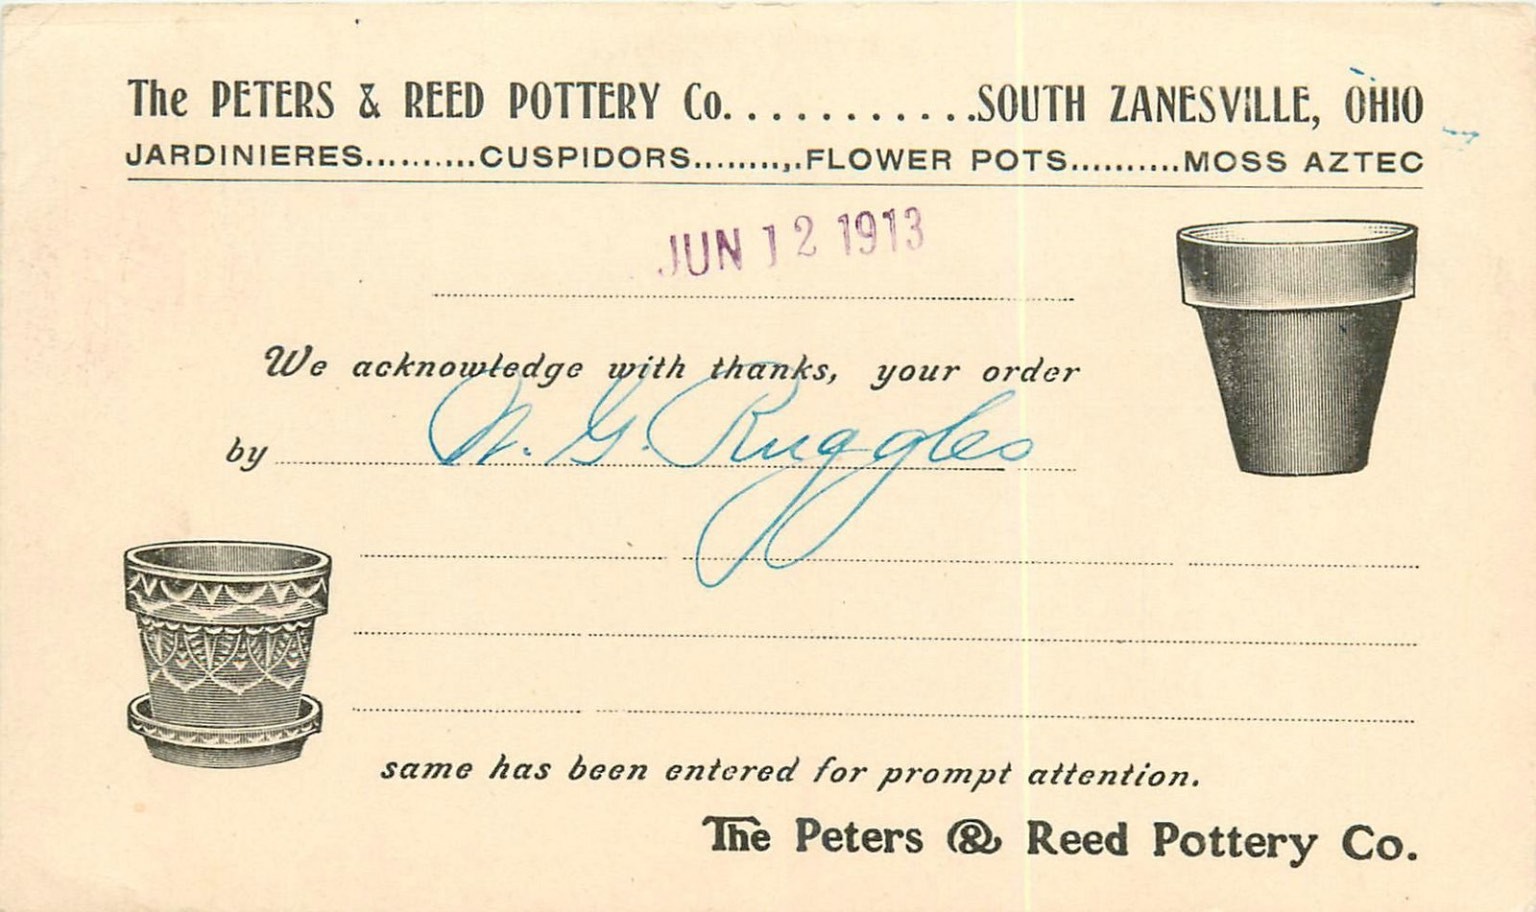 The PETERS & REED POTTERY Co............SOUTH ZANESVILLE, OHIO
JARDINIERES..........CUSPIDORS..........FLOWER POTS..........MOSS AZTEC
JUN 12 1913
We acknowledge with thanks, your order
by W. G. Ruggles
same has been entered for prompt attention.
The Peters & Reed Pottery Co.